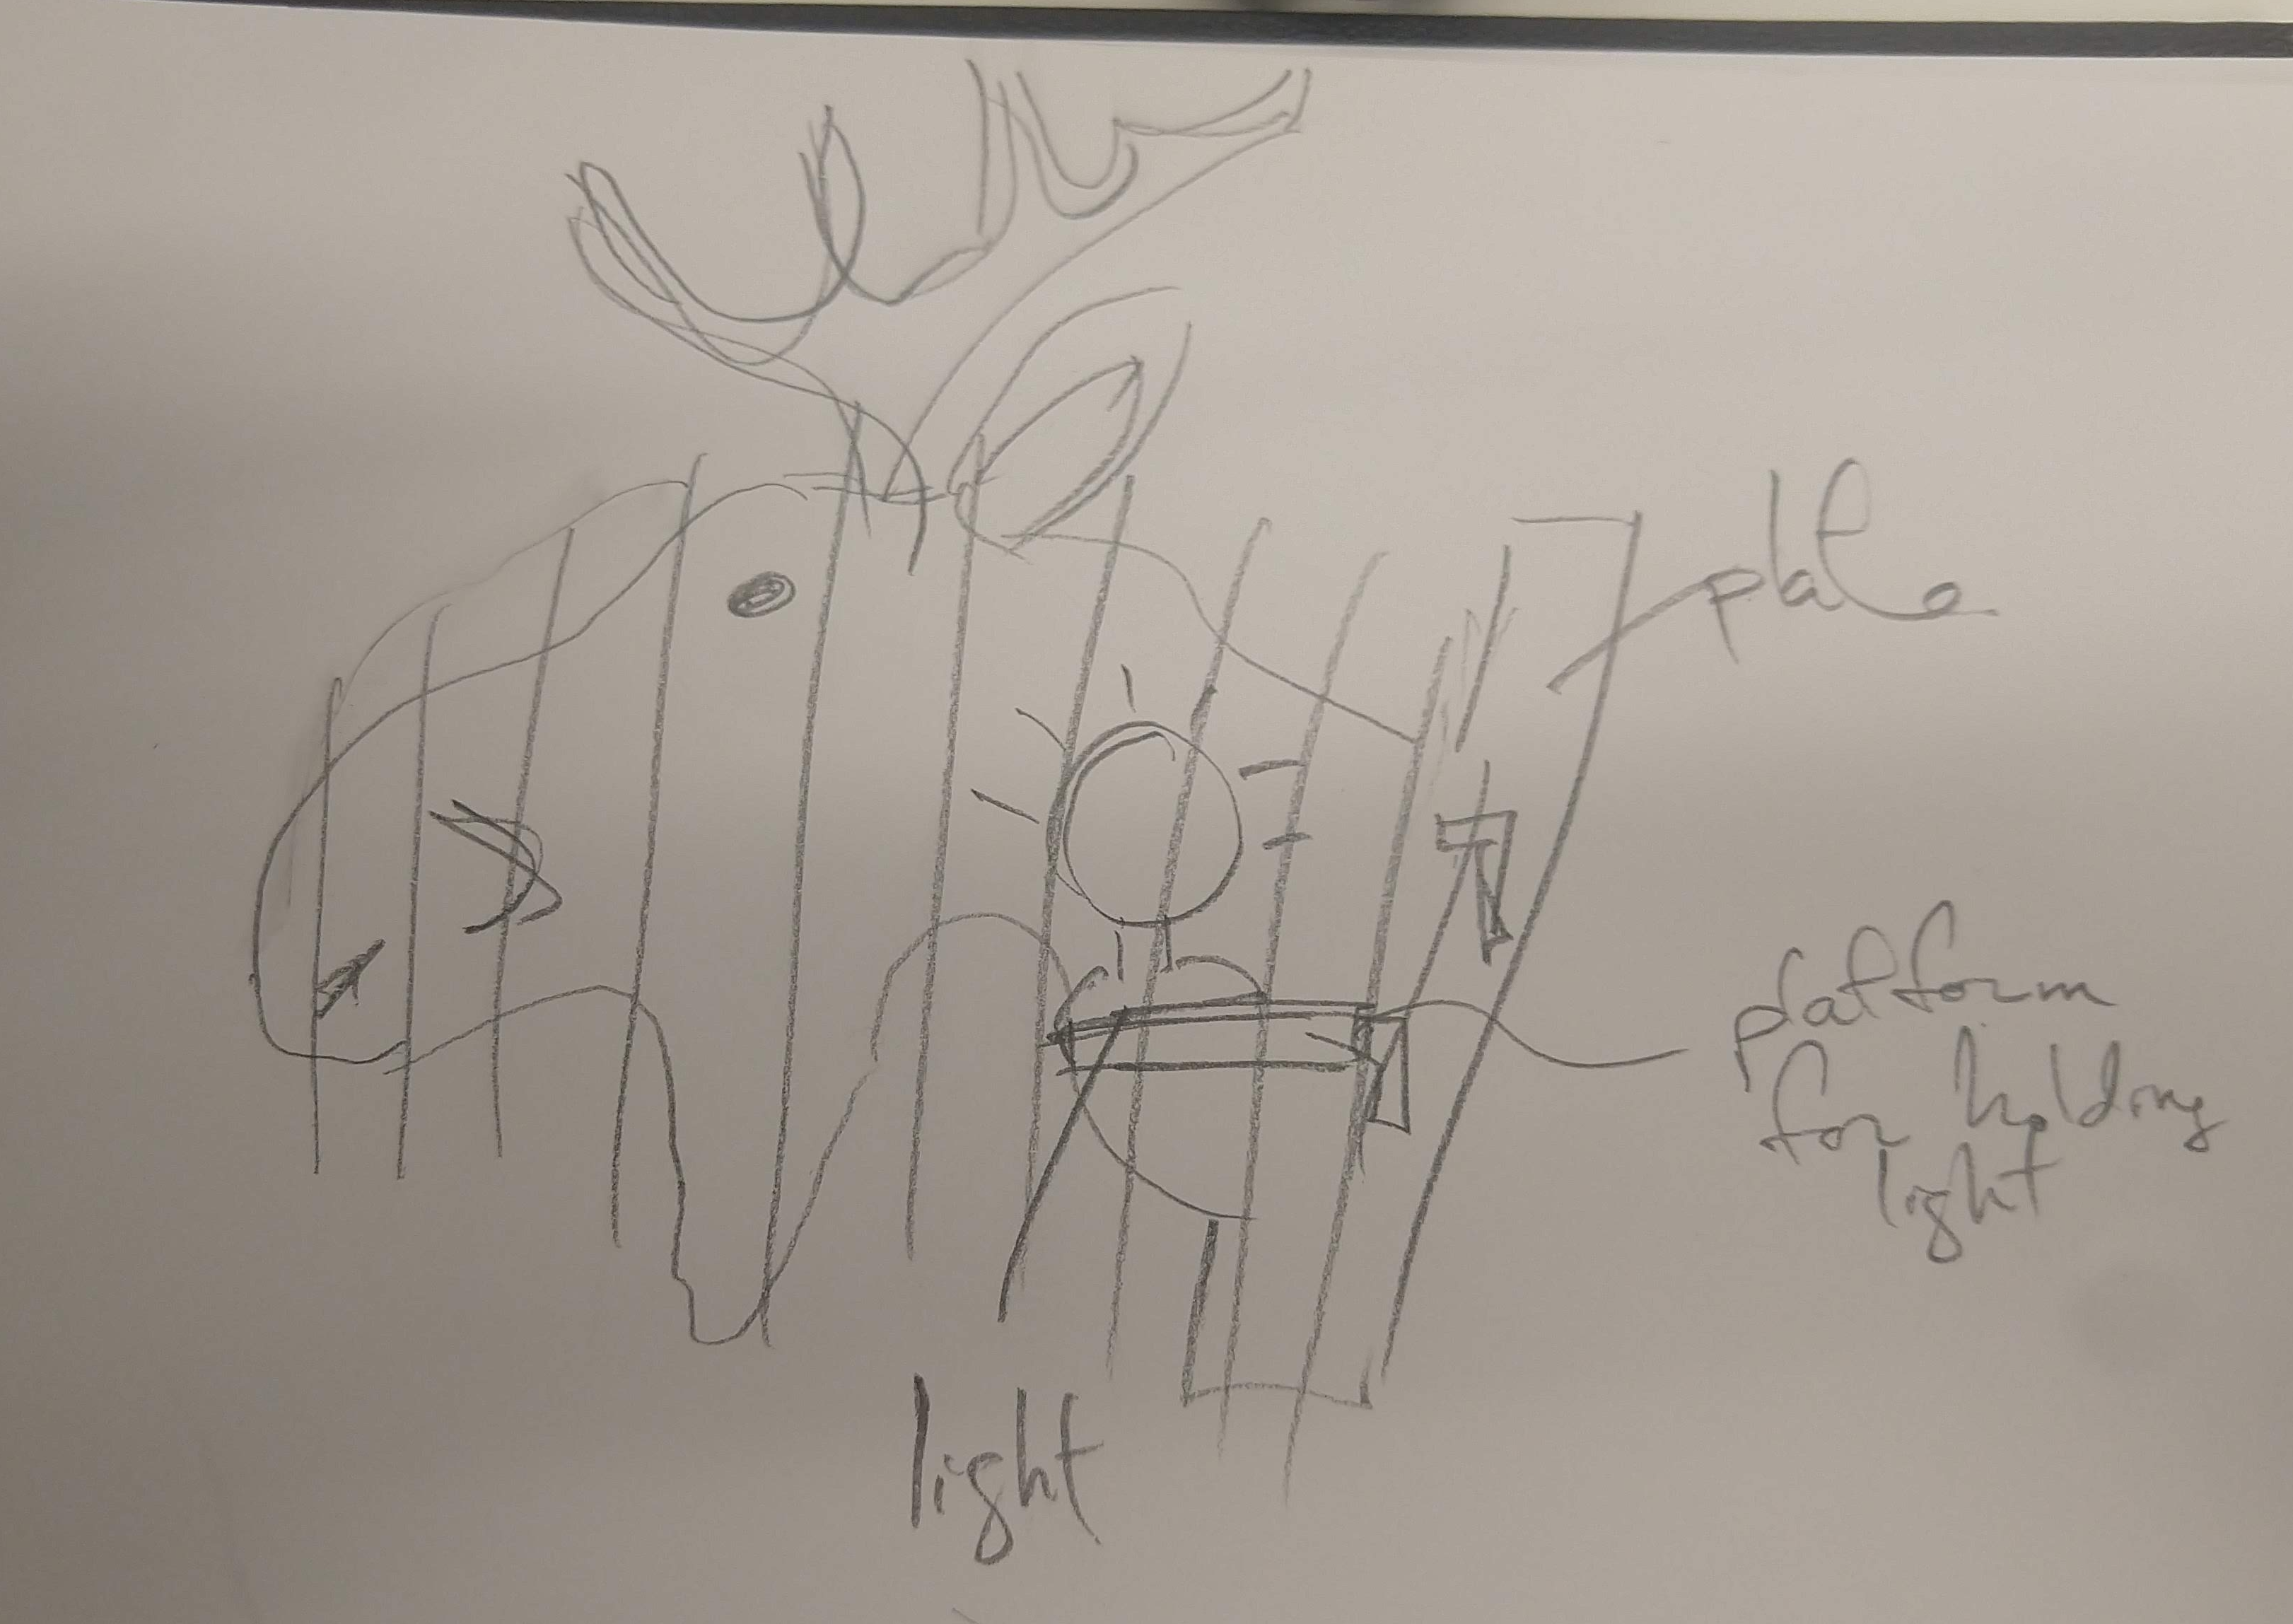 plate
platform
for holding
light
light